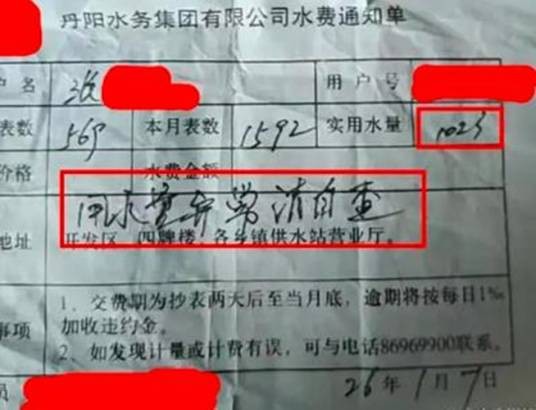 丹阳水务集团有限公司水费通知单
户名 用户号
表数 569 本月表数 1592 实用水量 1023
价格 水费金额
用水量异常请自查
地址 开发区、四牌楼、各乡镇供水站营业厅。
1、交费期为抄表两天后至当月底，逾期将按每日1‰
事项 加收违约金。
2、如发现计量或计费有误，可与电话86969900联系。
员
26年1月7日